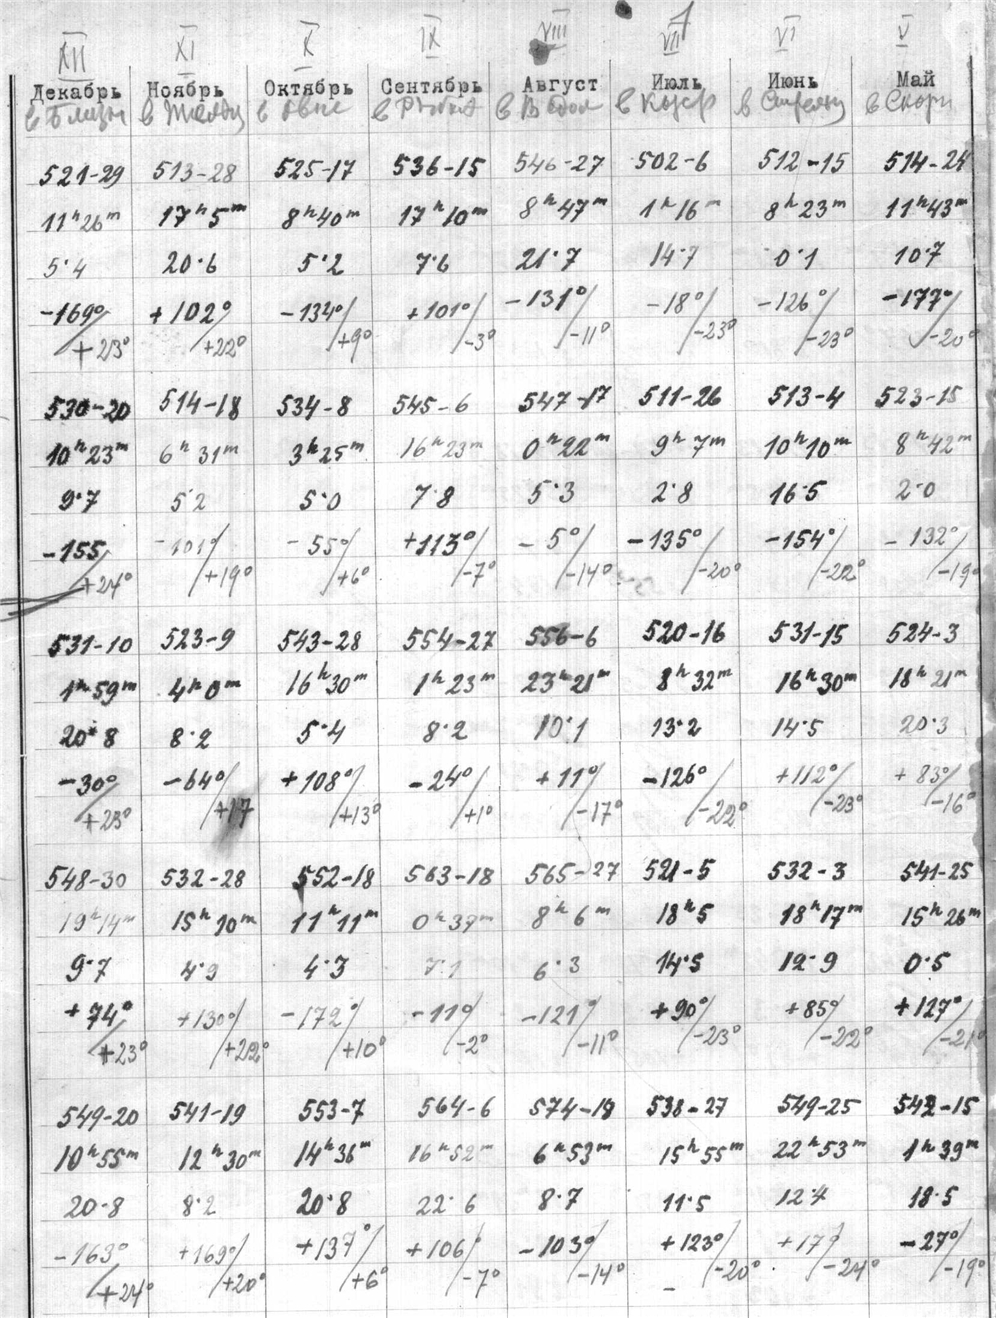 XII XI X IX VIII VII VI V
Декабрь Ноябрь Октябрь Сентябрь Август Июль Июнь Май
в Близн в в Овне в Рыбах в Водол в Козер в Стрельц в Скорп
521-29 513-28 525-17 536-15 546-27 502-6 512-15 514-24
11ʰ26ᵐ 17ʰ5ᵐ 8ʰ40ᵐ 17ʰ10ᵐ 8ʰ47ᵐ 1ʰ16ᵐ 8ʰ23ᵐ 11ʰ43ᵐ
5·4 20·6 5·2 7·6 21·7 14·7 0·1 10·7
-169°/ +102°/ -134°/ +101°/ -131°/ -18°/ -126°/ -177°/
+23° +22° +9° -3° -11° -23° -23° -20°
530-20 514-18 534-8 545-6 547-17 511-26 513-4 523-15
10ʰ23ᵐ 6ʰ31ᵐ 3ʰ25ᵐ 16ʰ23ᵐ 0ʰ22ᵐ 9ʰ7ᵐ 10ʰ10ᵐ 8ʰ42ᵐ
9·7 5·2 5·0 7·8 5·3 2·8 16·5 2·0
-155/ -101°/ -55°/ +113°/ -5°/ -135°/ -154°/ -132°/
+24° +19° +6° -7° -14° -20° -22° -19°
531-10 523-9 543-28 554-27 556-6 520-16 531-15 524-3
1ʰ59ᵐ 4ʰ0ᵐ 16ʰ30ᵐ 1ʰ23ᵐ 23ʰ21ᵐ 8ʰ32ᵐ 16ʰ30ᵐ 18ʰ21ᵐ
20·8 8·2 5·4 8·2 10·1 13·2 14·5 20·3
-30°/ -64°/ +108°/ -24°/ +11°/ -126°/ +112°/ +83°/
+23° +17 +13° +1° -17° -22° -23° -16°
548-30 532-28 552-18 563-18 565-27 521-5 532-3 541-25
19ʰ14ᵐ 15ʰ10ᵐ 11ʰ11ᵐ 0ʰ37ᵐ 8ʰ6ᵐ 18ʰ5 18ʰ17ᵐ 15ʰ26ᵐ
9·7 4·9 4·3 7·1 6·3 14·5 12·9 0·5
+74°/ +130°/ -172°/ -11°/ -121°/ +90°/ +85°/ +127°/
+23° +22° +10° -2° -11° -23° -22° -21°
549-20 541-19 553-7 564-6 574-18 538-27 549-25 542-15
10ʰ55ᵐ 12ʰ30ᵐ 14ʰ36ᵐ 16ʰ52ᵐ 6ʰ53ᵐ 15ʰ55ᵐ 22ʰ53ᵐ 1ʰ39ᵐ
20·8 8·2 20·8 22·6 8·7 11·5 12·4 18·5
-163°/ +169°/ +137°/ +106/ -103°/ +123°/ +17°/ -27°/
+24° +20° +6° -7° -14° -20° -24° -19°